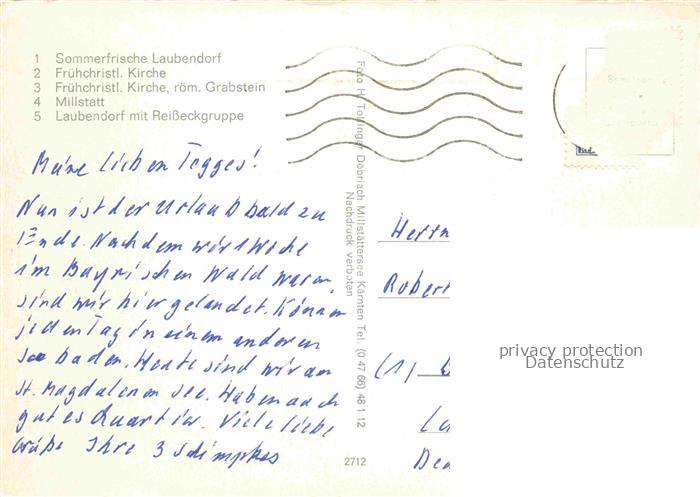 1 Sommerfrische Laubendorf
2 Frühchristl. Kirche
3 Frühchristl. Kirche, röm. Grabstein
4 Millstatt
5 Laubendorf mit Reißeckgruppe
Meine lieben Tegges!
Nun ist der Urlaub bald zu
Ende. Nachdem wir 1 Woche
im Bayrischen Wald waren,
sind wir hier gelandet. Können
jeden Tag in einem anderen
See baden. Heute sind wir am
St. Magdalenen See. Haben auch
gutes Quartier. Viele liebe
Grüße Ihre 3 Schimpkes
Foto H. Döbriach Millstättersee Kärnten Tel. (0 47 66) 48 1 12
Nachdruck verboten
2712
Herrn
Robert
(1)
privacy protection
Datenschutz